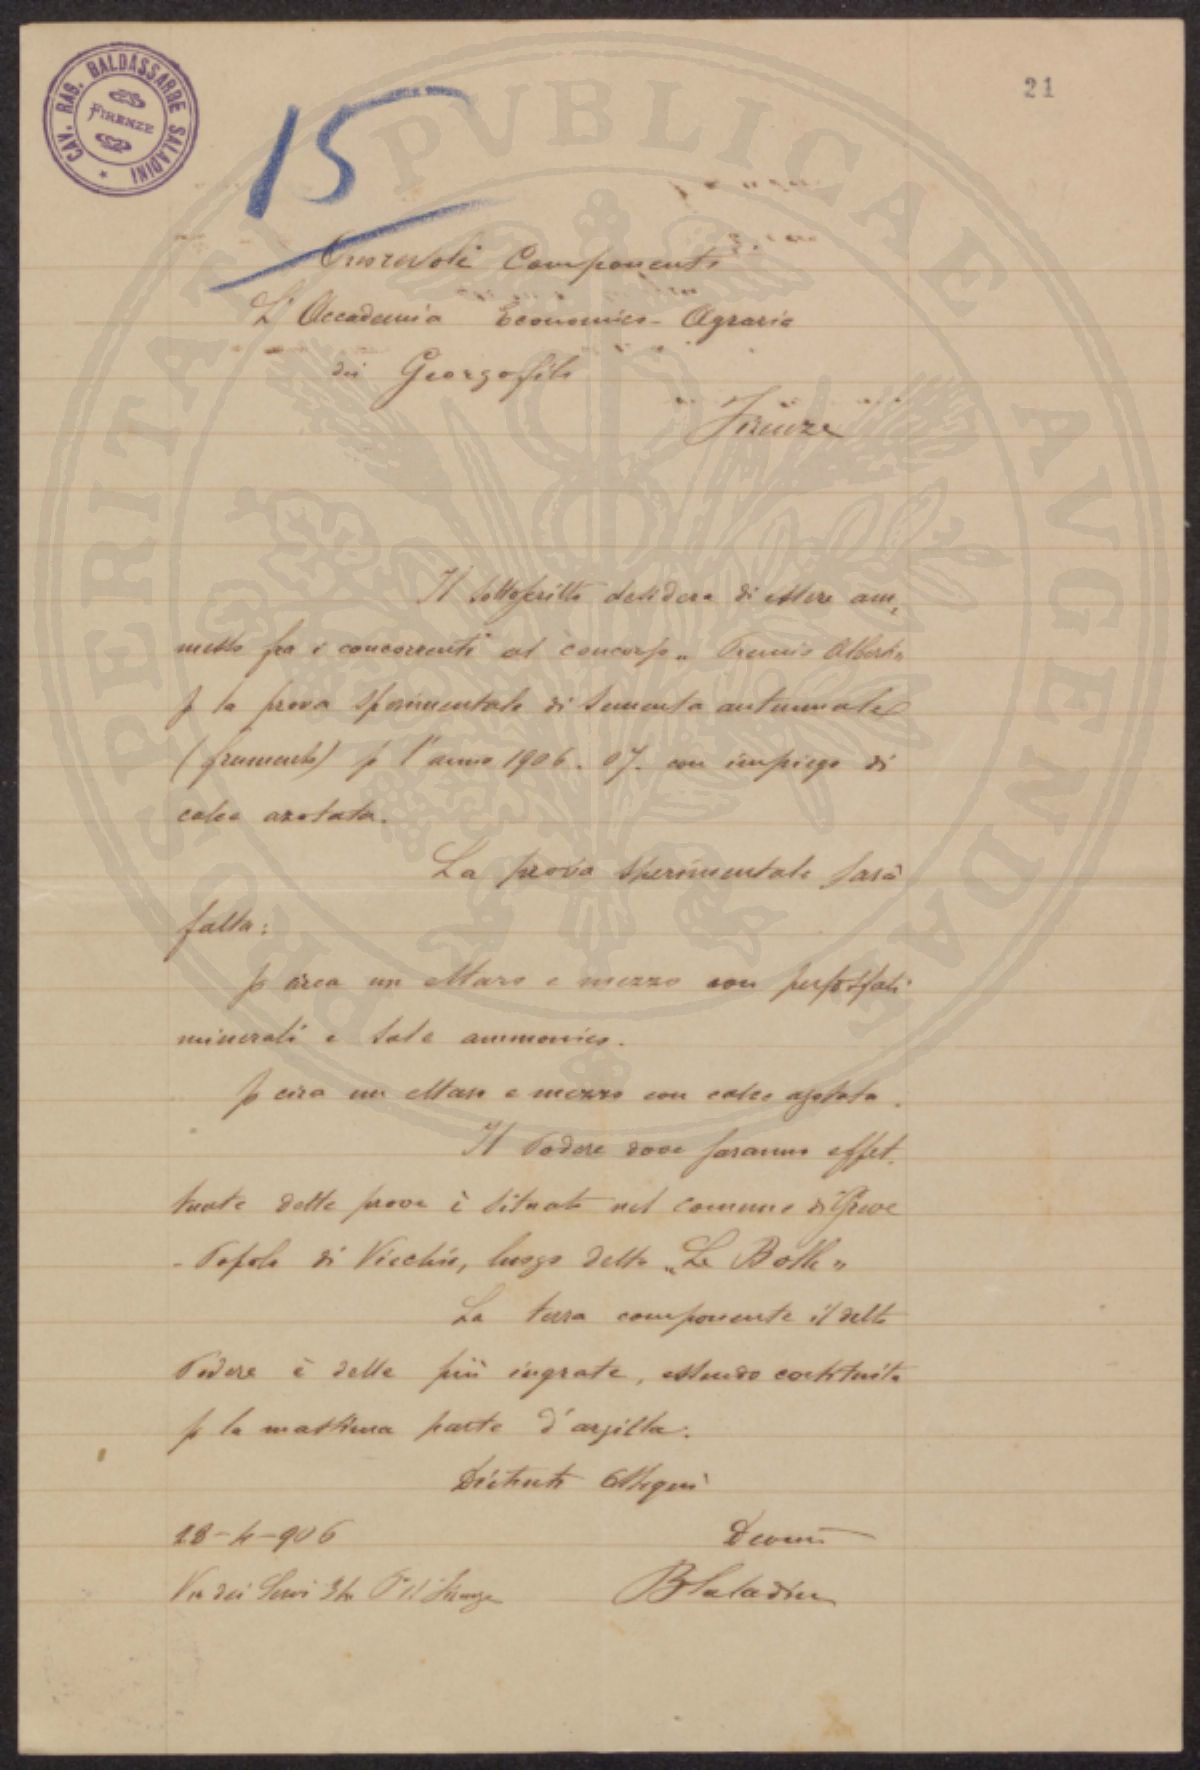 CAV. RAG. BALDASSARRE SALADINI
FIRENZE
21
15
PROSPERITATI PVBLICAE AVGENDAE
Onorevoli Componenti
L'Accademia Economico-Agraria
dei Georgofili
Firenze
Il sottoscritto desidera di essere am-
messo fra i concorrenti al concorso „ Premio Alberti„
p la prova sperimentale di sementa autunnale
(frumento) p l'anno 1906-07. con impiego di
calce azotata.
La prova sperimentale sarà
fatta:
p circa un ettaro e mezzo con perfosfati
minerali e sale ammonico.
p circa un ettaro e mezzo con calce azotata.
Il Podere dove saranno effet-
tuate dette prove è situato nel comune di Greve
- Popolo di Vicchio, luogo detto „Le Bolle„
La terra componente il detto
Podere è delle più ingrate, essendo costituita
p la massima parte d'argilla.
Distinti Ossequi
28-4-906
Devmo
Via dei Servi Firenze
BSaladini